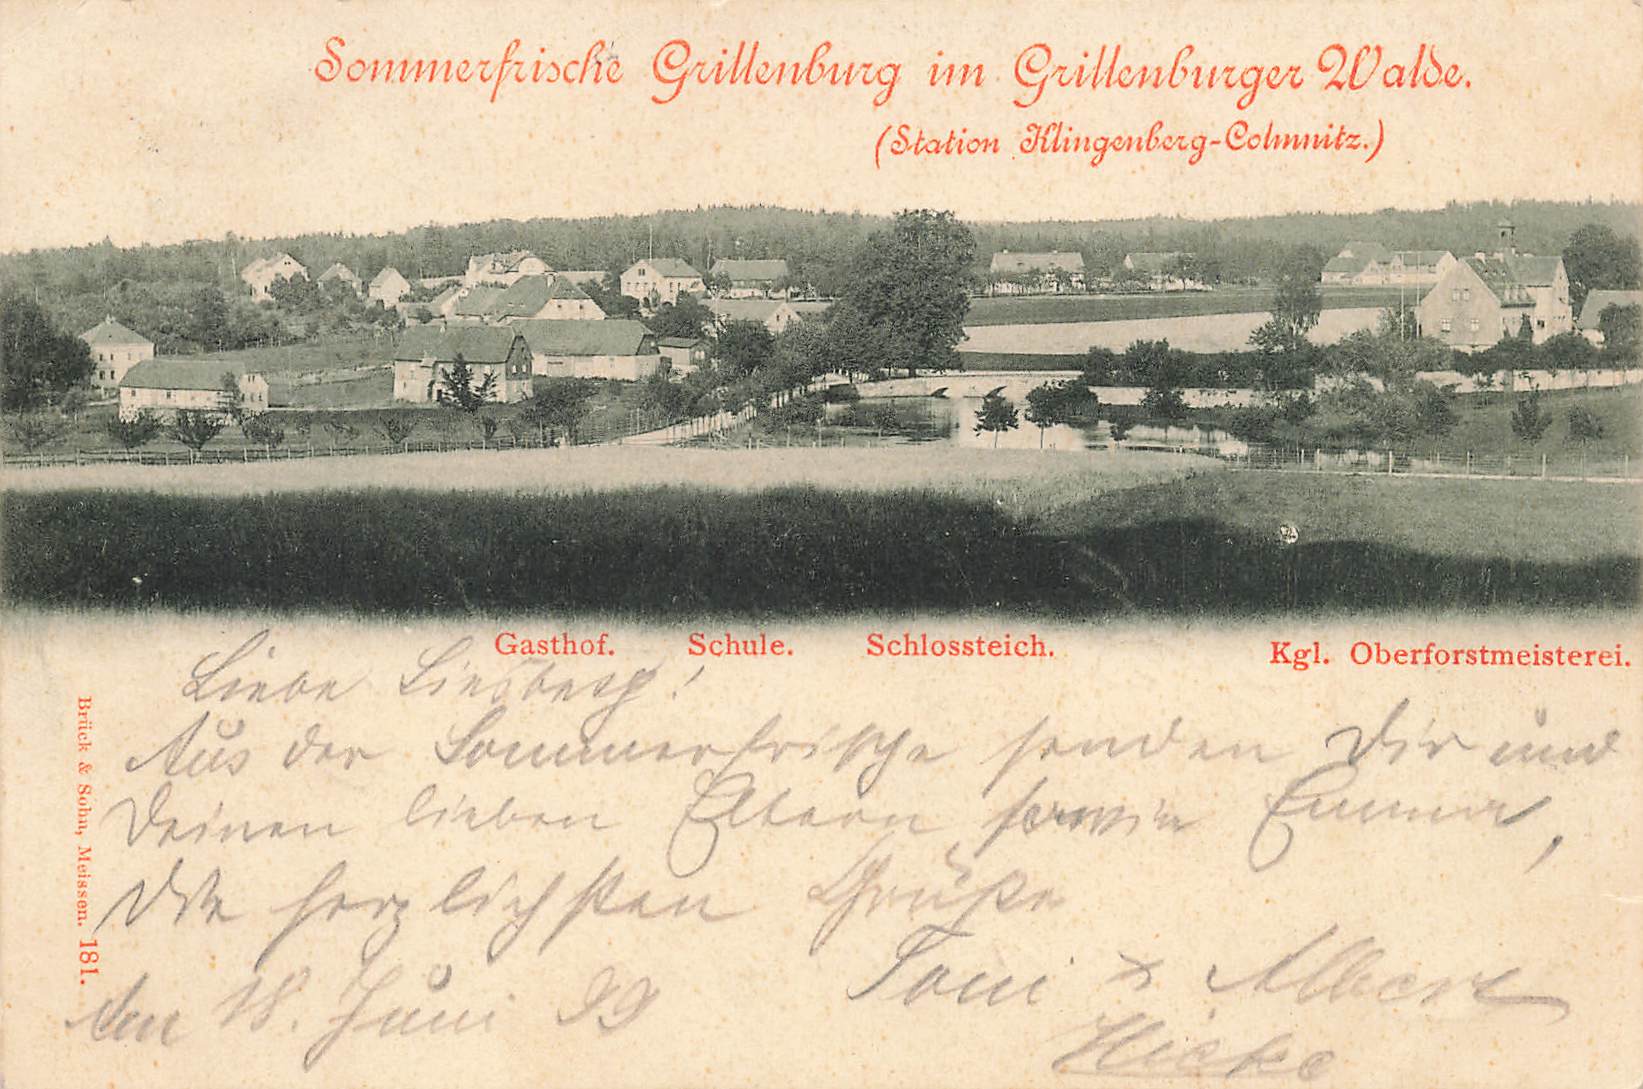 Sommerfrische Grillenburg im Grillenburger Walde.
(Station Klingenberg-Colmnitz.)
Gasthof. Schule. Schlossteich. Kgl. Oberforstmeisterei.
Liebe
Aus der Sommerfrische senden Dir und
Deinen lieben Eltern sowie Emma,
die herzlichsten Grüße
Toni & Albert
den 18. Juni 99
Brück & Sohn, Meissen. 181.